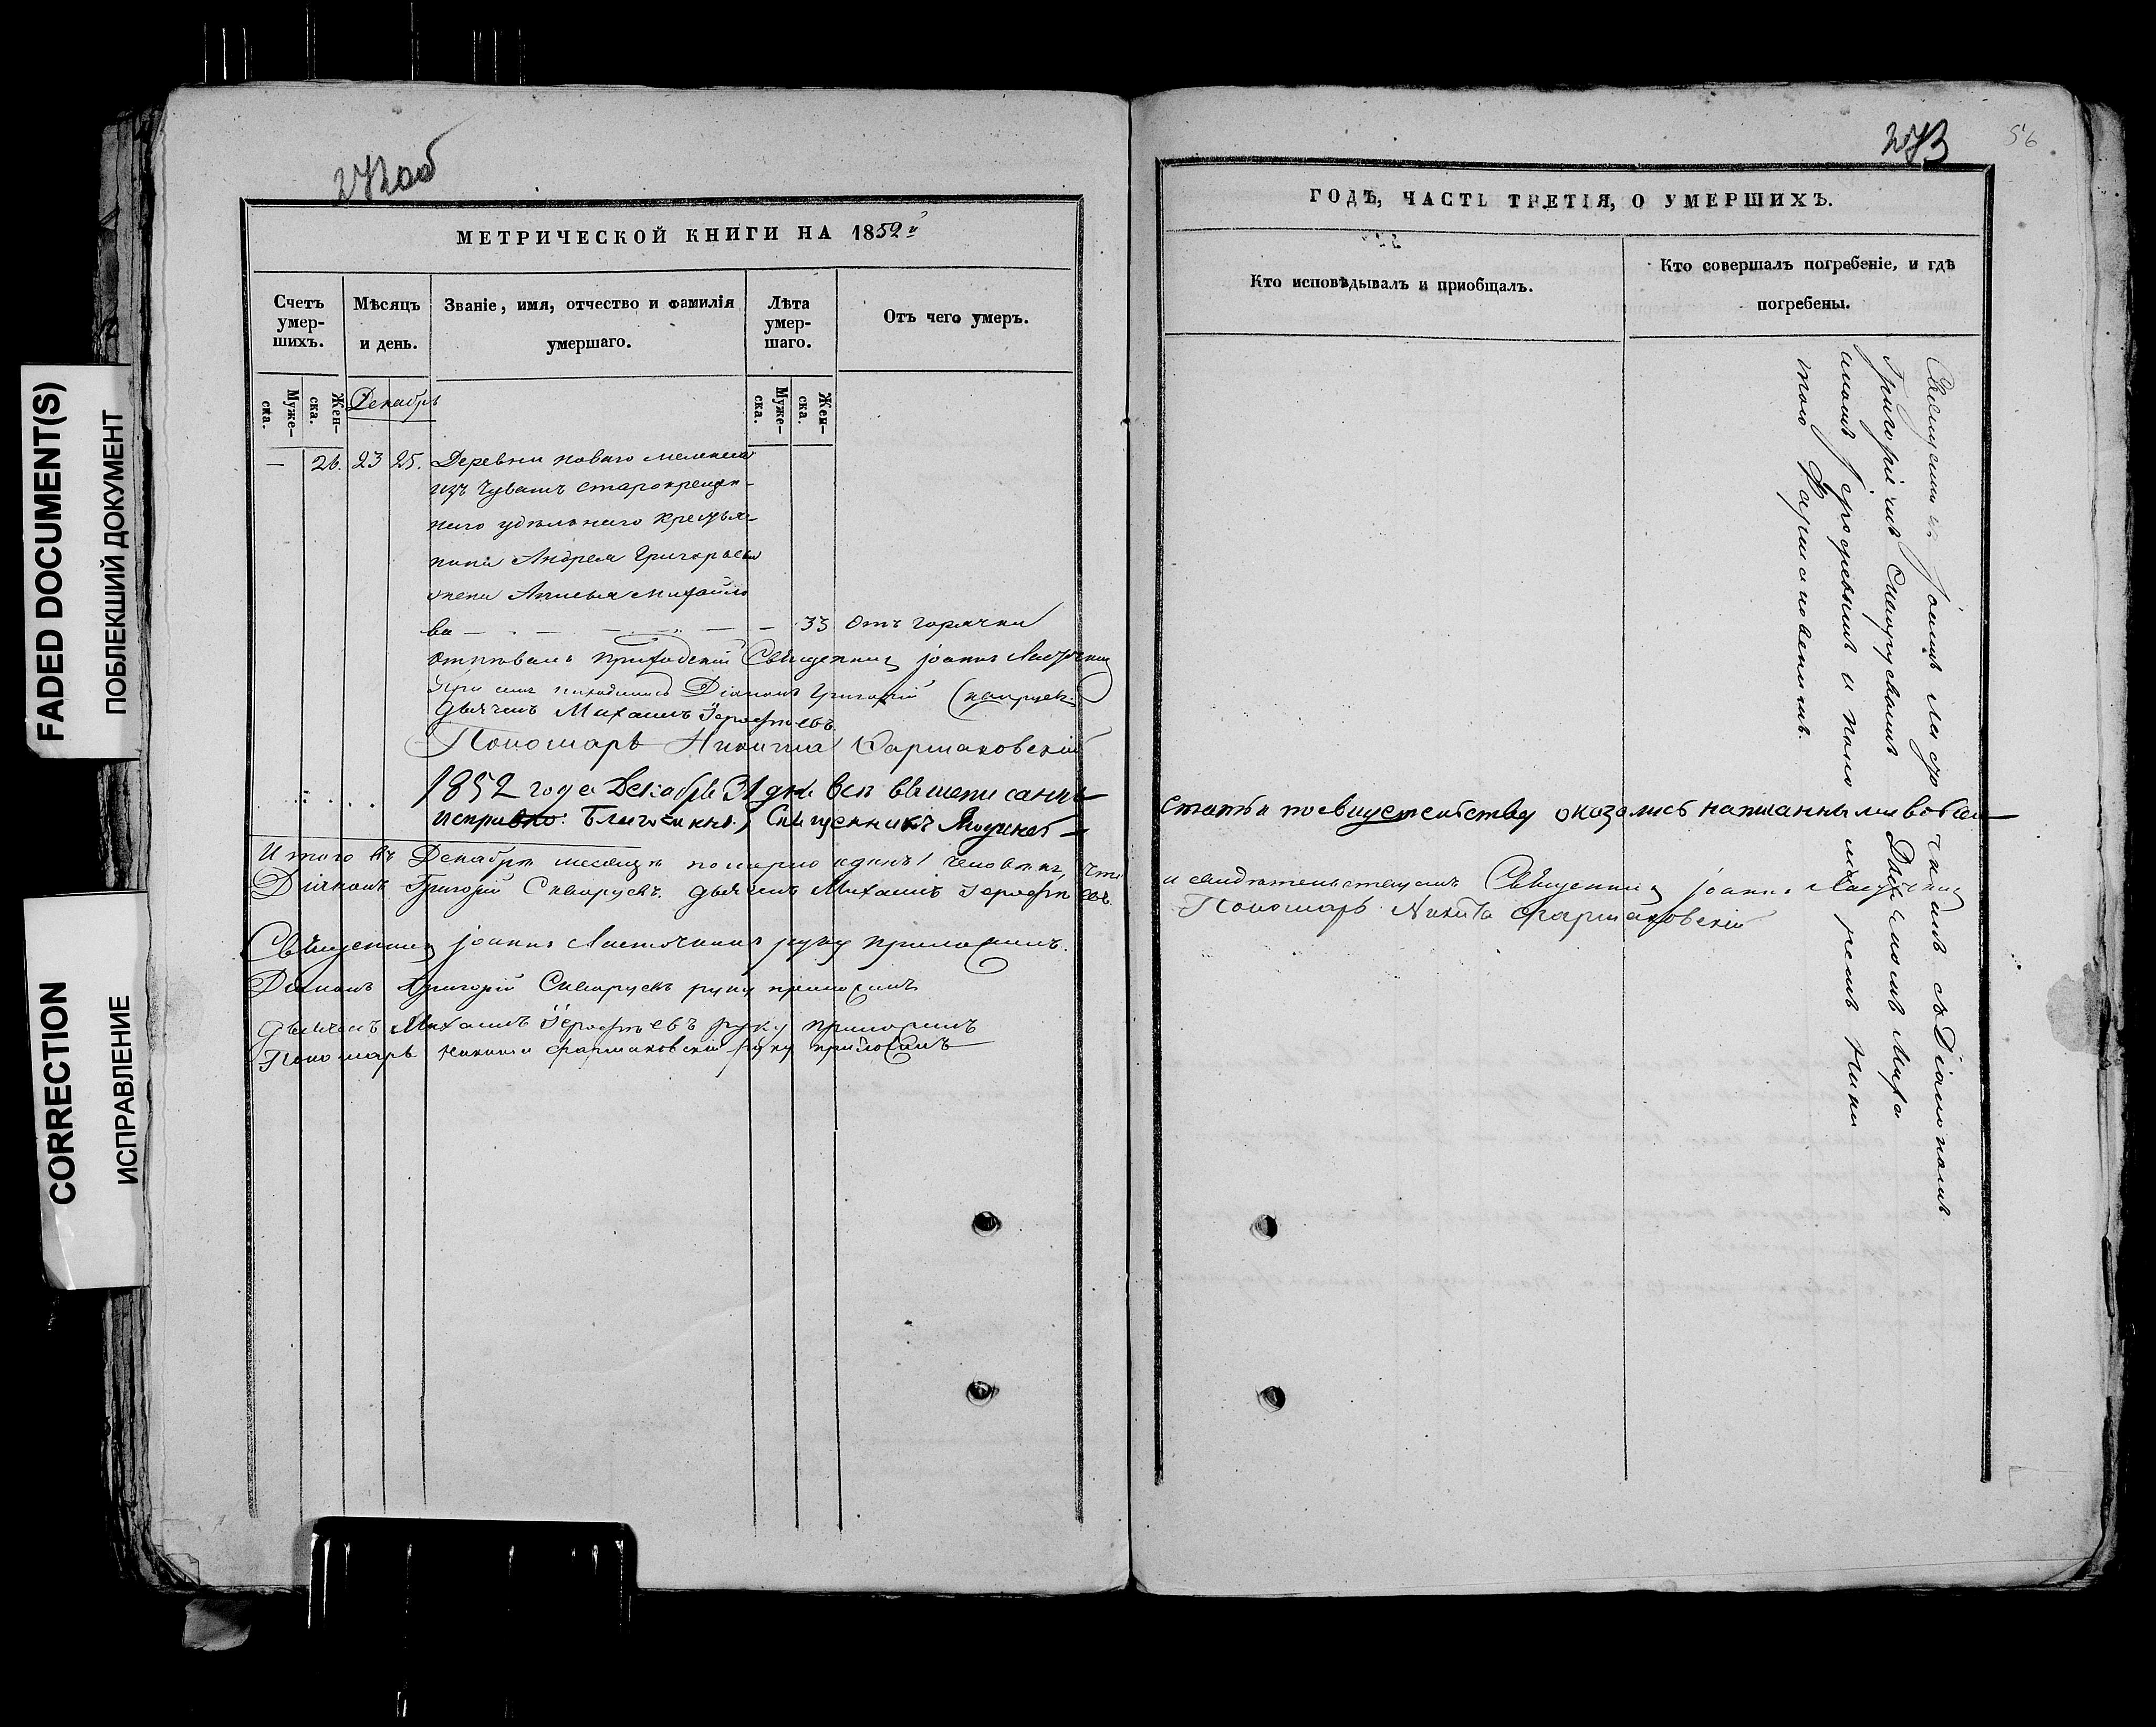 FADED DOCUMENT(S)
ПОБЛЕКШИЙ ДОКУМЕНТ
CORRECTION
ИСПРАВЛЕНИЕ
272об
МЕТРИЧЕСКОЙ КНИГИ НА 1852й
Счетъ умер-шихъ.
Мѣсяцъ и день.
Званіе, имя, отчество и фамилія умершаго.
Лѣта умер-шаго.
Отъ чего умеръ.
Муже-ска.
Жен-ска.
Декабрь
Муже-ска.
Жен-ска.
— 26. 23 25. Деревни новаго
изъ Чувашъ старокрещен-
наго удѣльнаго крестья-
нина Андрея Григорьева
жена Михайло
ва — — — — — 33 Отъ горячки
Отпѣвалъ приходскій Священникъ Іоаннъ Ласточкинъ
При семъ находились Діаконъ Григорій
Дьячекъ Михаилъ Іерофѣевъ
Пономарь Никита Фармаковскій
1852 года Декабря 31 дня всѣ вышеписанные
исправно. Благочинный, Священникъ
Итого въ Декабрѣ месяцѣ померло одинъ 1 человѣкъ, что
Діаконъ Григорій Дьячекъ Михаилъ Іерофѣевъ.
Священникъ Іоаннъ Ласточкинъ руку приложилъ.
Діаконъ Григорій руку приложилъ
Дьячекъ Михаилъ Іерофѣевъ руку приложилъ
Пономарь Никита Фармаковскій руку приложилъ
273
56
ГОДЪ, ЧАСТЬ ТРЕТІЯ, О УМЕРШИХЪ.
Кто исповѣдывалъ и приобщалъ.
Кто совершалъ погребеніе, и гдѣ погребены.
Священникъ Іоаннъ Ласточкинъ съ Діакономъ
Григоріемъ Дьячкомъ Миха
иломъ Іерофѣевымъ и пономаремъ Ники
тою Фармаковскимъ.
статьи по свидетельству оказались написанными во всем
и свидѣтельствуемъ Священникъ Іоаннъ Ласточкинъ
Пономарь Никита Фармаковскій